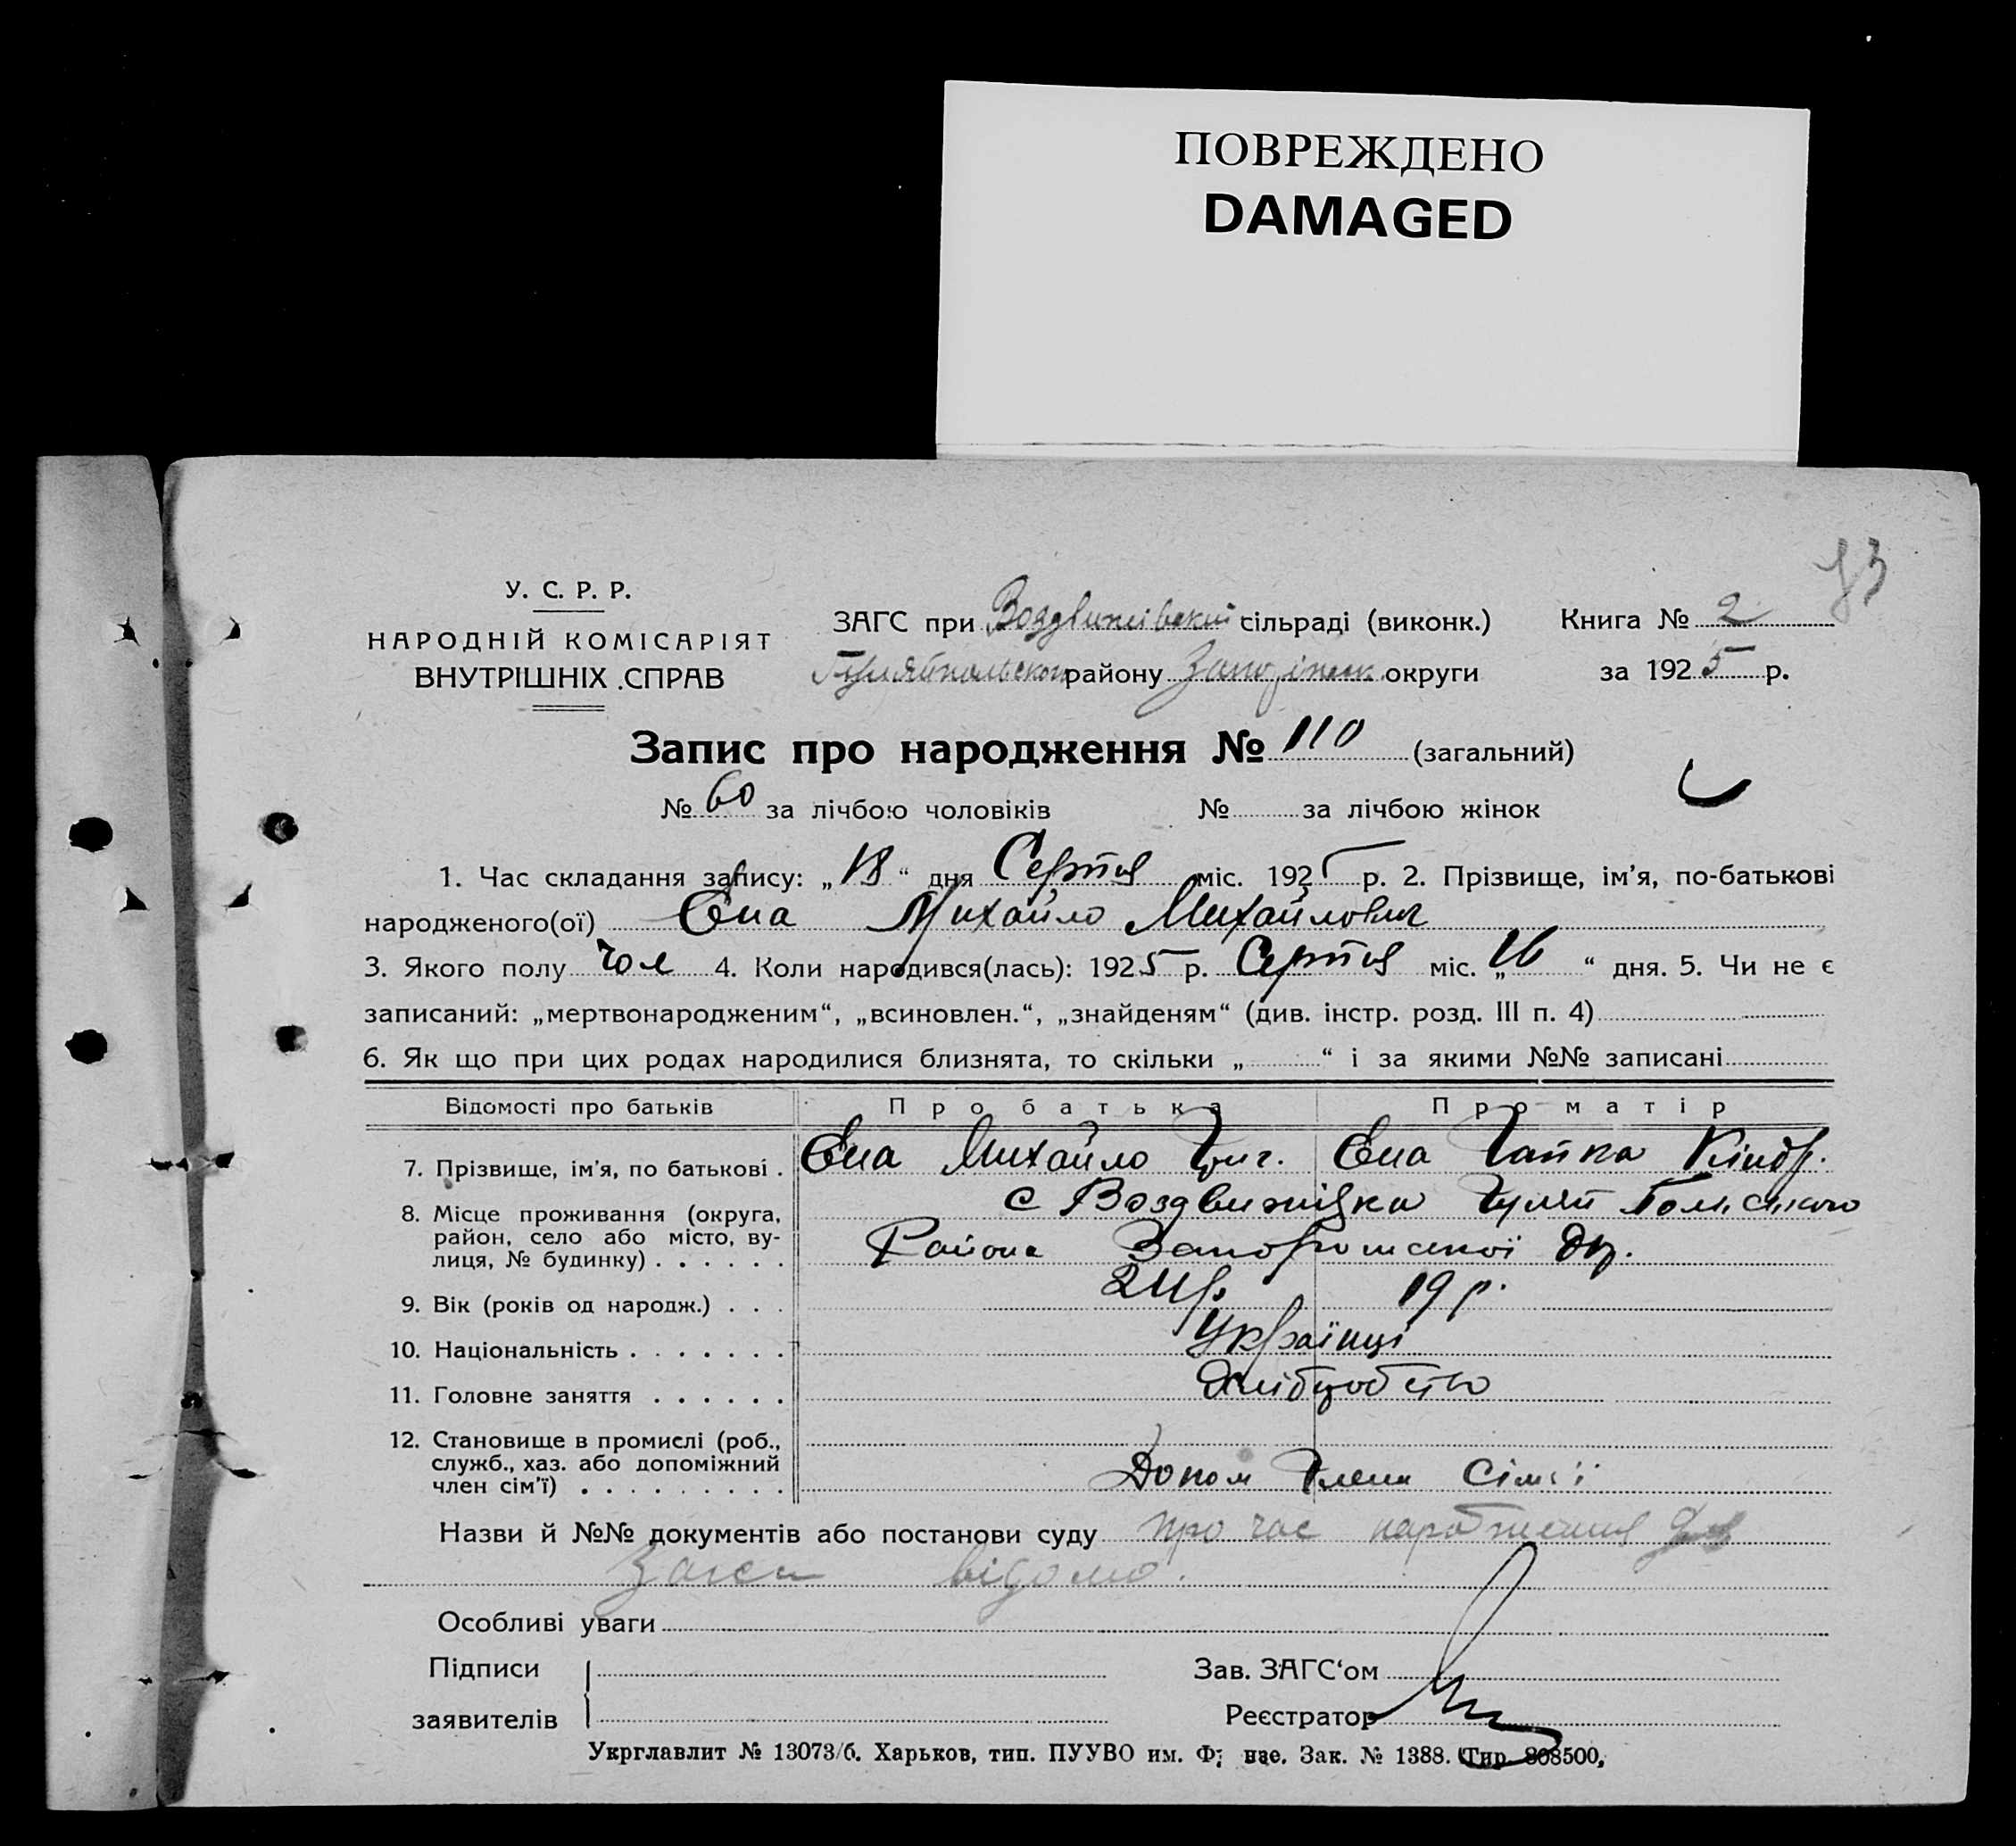 ПОВРЕЖДЕНО
DAMAGED
У. С. Р. Р.
НАРОДНІЙ КОМІСАРІЯТ
ВНУТРІШНІХ СПРАВ
ЗАГС при Воздвижівській сільраді (виконк.)
району Запоріжск. округи
Книга № 2
за 1925 р.
Запис про народження № 110 (загальний)
№ 60 за лічбою чоловіків № за лічбою жінок
1. Час складання запису: „18“ дня Серпня міс. 1925 р. 2. Прізвище, ім'я, по-батькові
народженого(ої) Єна Михайло Михайлович
3. Якого полу чол 4. Коли народився(лась): 1925 р. Серпня міс. „16“ дня. 5. Чи не є
записаний: „мертвонародженим“, „всиновлен.“, „знайденям“ (див. інстр. розд. III п. 4)
6. Як що при цих родах народилися близнята, то скільки „ “ і за якими №№ записані
Відомості про батьків Про батька Про матір
7. Прізвище, ім'я, по батькові . Єна Михайло Григ. Єна Гапка Кіндр.
8. Місце проживання (округа, район, село або місто, вулиця, № будинку) . . . . . . с Воздвижівка Гуляй
Района Запорижської Окр.
9. Вік (років од народж.) . . . 24 р. 19 р.
10. Національність . . . . . . . Українці
11. Головне заняття . . . . . . Хліборобство
12. Становище в промислі (роб.,
служб., хаз. або допоміжний
член сім'ї) . . . . . . . . . Допом Члени Сім'ї
Назви й №№ документів або постанови суду про час народження для
Загса відомо.
Особливі уваги
Підписи
заявителів
Зав. ЗАГС‘ом
Реєстратор
Укрглавлит № 13073/б. Харьков, тип. ПУУВО им. Ф. Зак. № 1388. Тир. 808500,